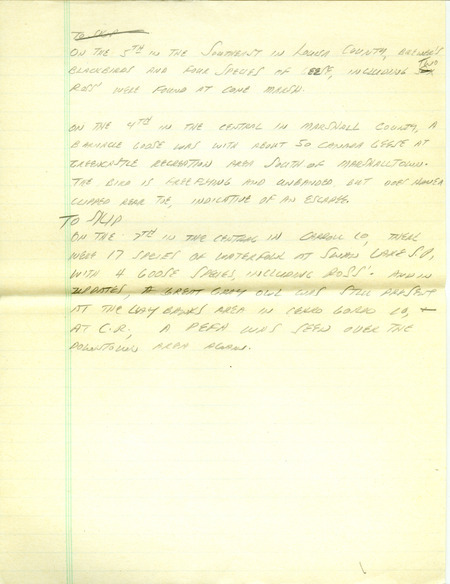 TO SKIP
ON THE 5TH IN THE SOUTHEAST IN LOUISA COUNTY, BREWER'S
BLACKBIRDS AND FOUR SPECIES OF GEESE, INCLUDING TWO
ROSS' WERE FOUND AT CONE MARSH.
ON THE 4TH IN THE CENTRAL IN MARSHALL COUNTY, A
BARNACLE GOOSE WAS WITH ABOUT 50 CANADA GEESE AT
GREENCASTLE RECREATION AREA SOUTH OF MARSHALLTOWN.
THE BIRD IS FREE FLYING AND UNBANDED BUT DOES HAVE A
CLIPPED REAR TOE, INDICATIVE OF AN ESCAPEE.
TO SKIP
ON THE 7TH IN THE CENTRAL IN CARROLL CO, THERE
WERE 17 SPECIES OF WATERFOWL AT SWAN LAKE SP,
WITH 4 GOOSE SPECIES, INCLUDING ROSS'. AND IN
UPDATES, A GREAT GREY OWL WAS STILL PRESENT
AT THE CLAY BANKS AREA IN CERRO GORDO CO, +
AT C.R., A PEFA WAS SEEN OVER THE
DOWNTOWN AREA AGAIN.